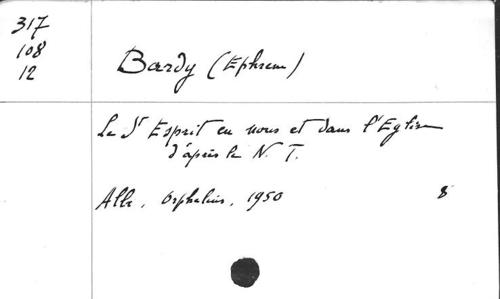 317
108
12
Bardy (Ephrem)
Le St Esprit en nous et dans l'Eglise
d'après le N. T.
Albi, Orphelins, 1950 8